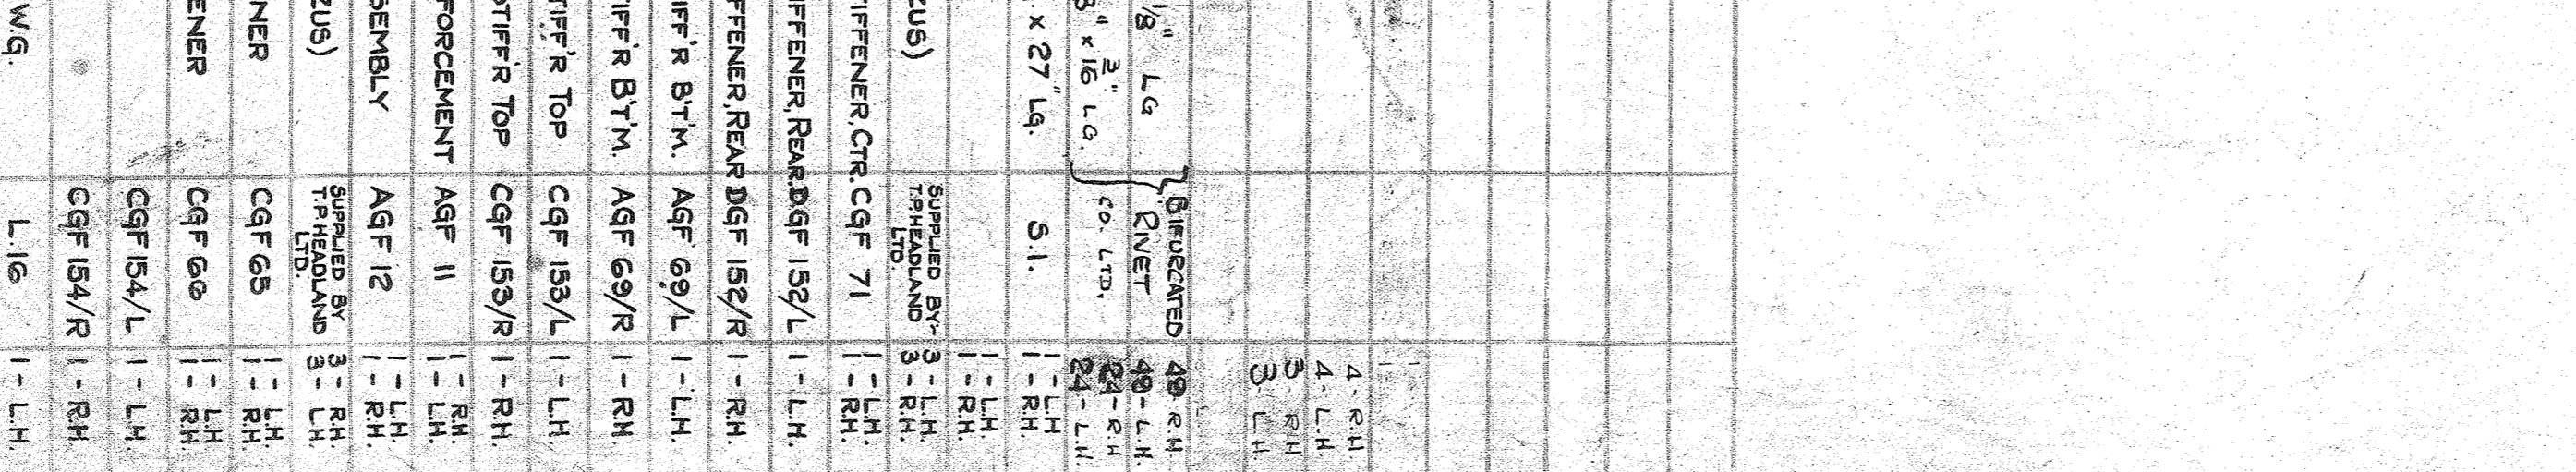 4 - R.H
4 - L.H
3 R.H
3 L.H
BIFURCATED 48 R.H.
1/8" LG RIVET 48 - L.H.
CO. LTD. 24 - R.H
" x 3/16" LG. 24 - L.H.
1 - L.H
. x 27" LG. S.I. 1 - R.H.
1 - L.H.
1 - R.H.
SUPPLIED BY:- 3 - L.H.
ZUS) T.P. HEADLAND LTD. 3 - R.H.
1 - L.H.
IFFENER. CTR. CGF 71 1 - R.H.
IFFENER, REAR. DGF 152/L 1 - L.H.
FFENER, REAR DGF 152/R 1 - R.H.
IFF'R B'T'M. AGF 69/L 1 - L.H.
IFF'R B'T'M. AGF 69/R 1 - R.H
TIFF'R TOP CGF 153/L 1 - L.H.
TIFF'R TOP CGF 153/R 1 - R.H.
1 - R.H
FORCEMENT AGF 11 1 - L.H.
1 - L.H.
SEMBLY AGF 12 1 - R.H.
SUPPLIED BY 3 - R.H.
ZUS) T.P. HEADLAND LTD. 3 - L.H.
1 - L.H.
NER CGF 65 1 - R.H.
1 - L.H
ENER CGF 66 1 - R.H.
CGF 154/L 1 - L.H.
CGF 154/R 1 - R.H.
W.G. L.16 1 - L.H.